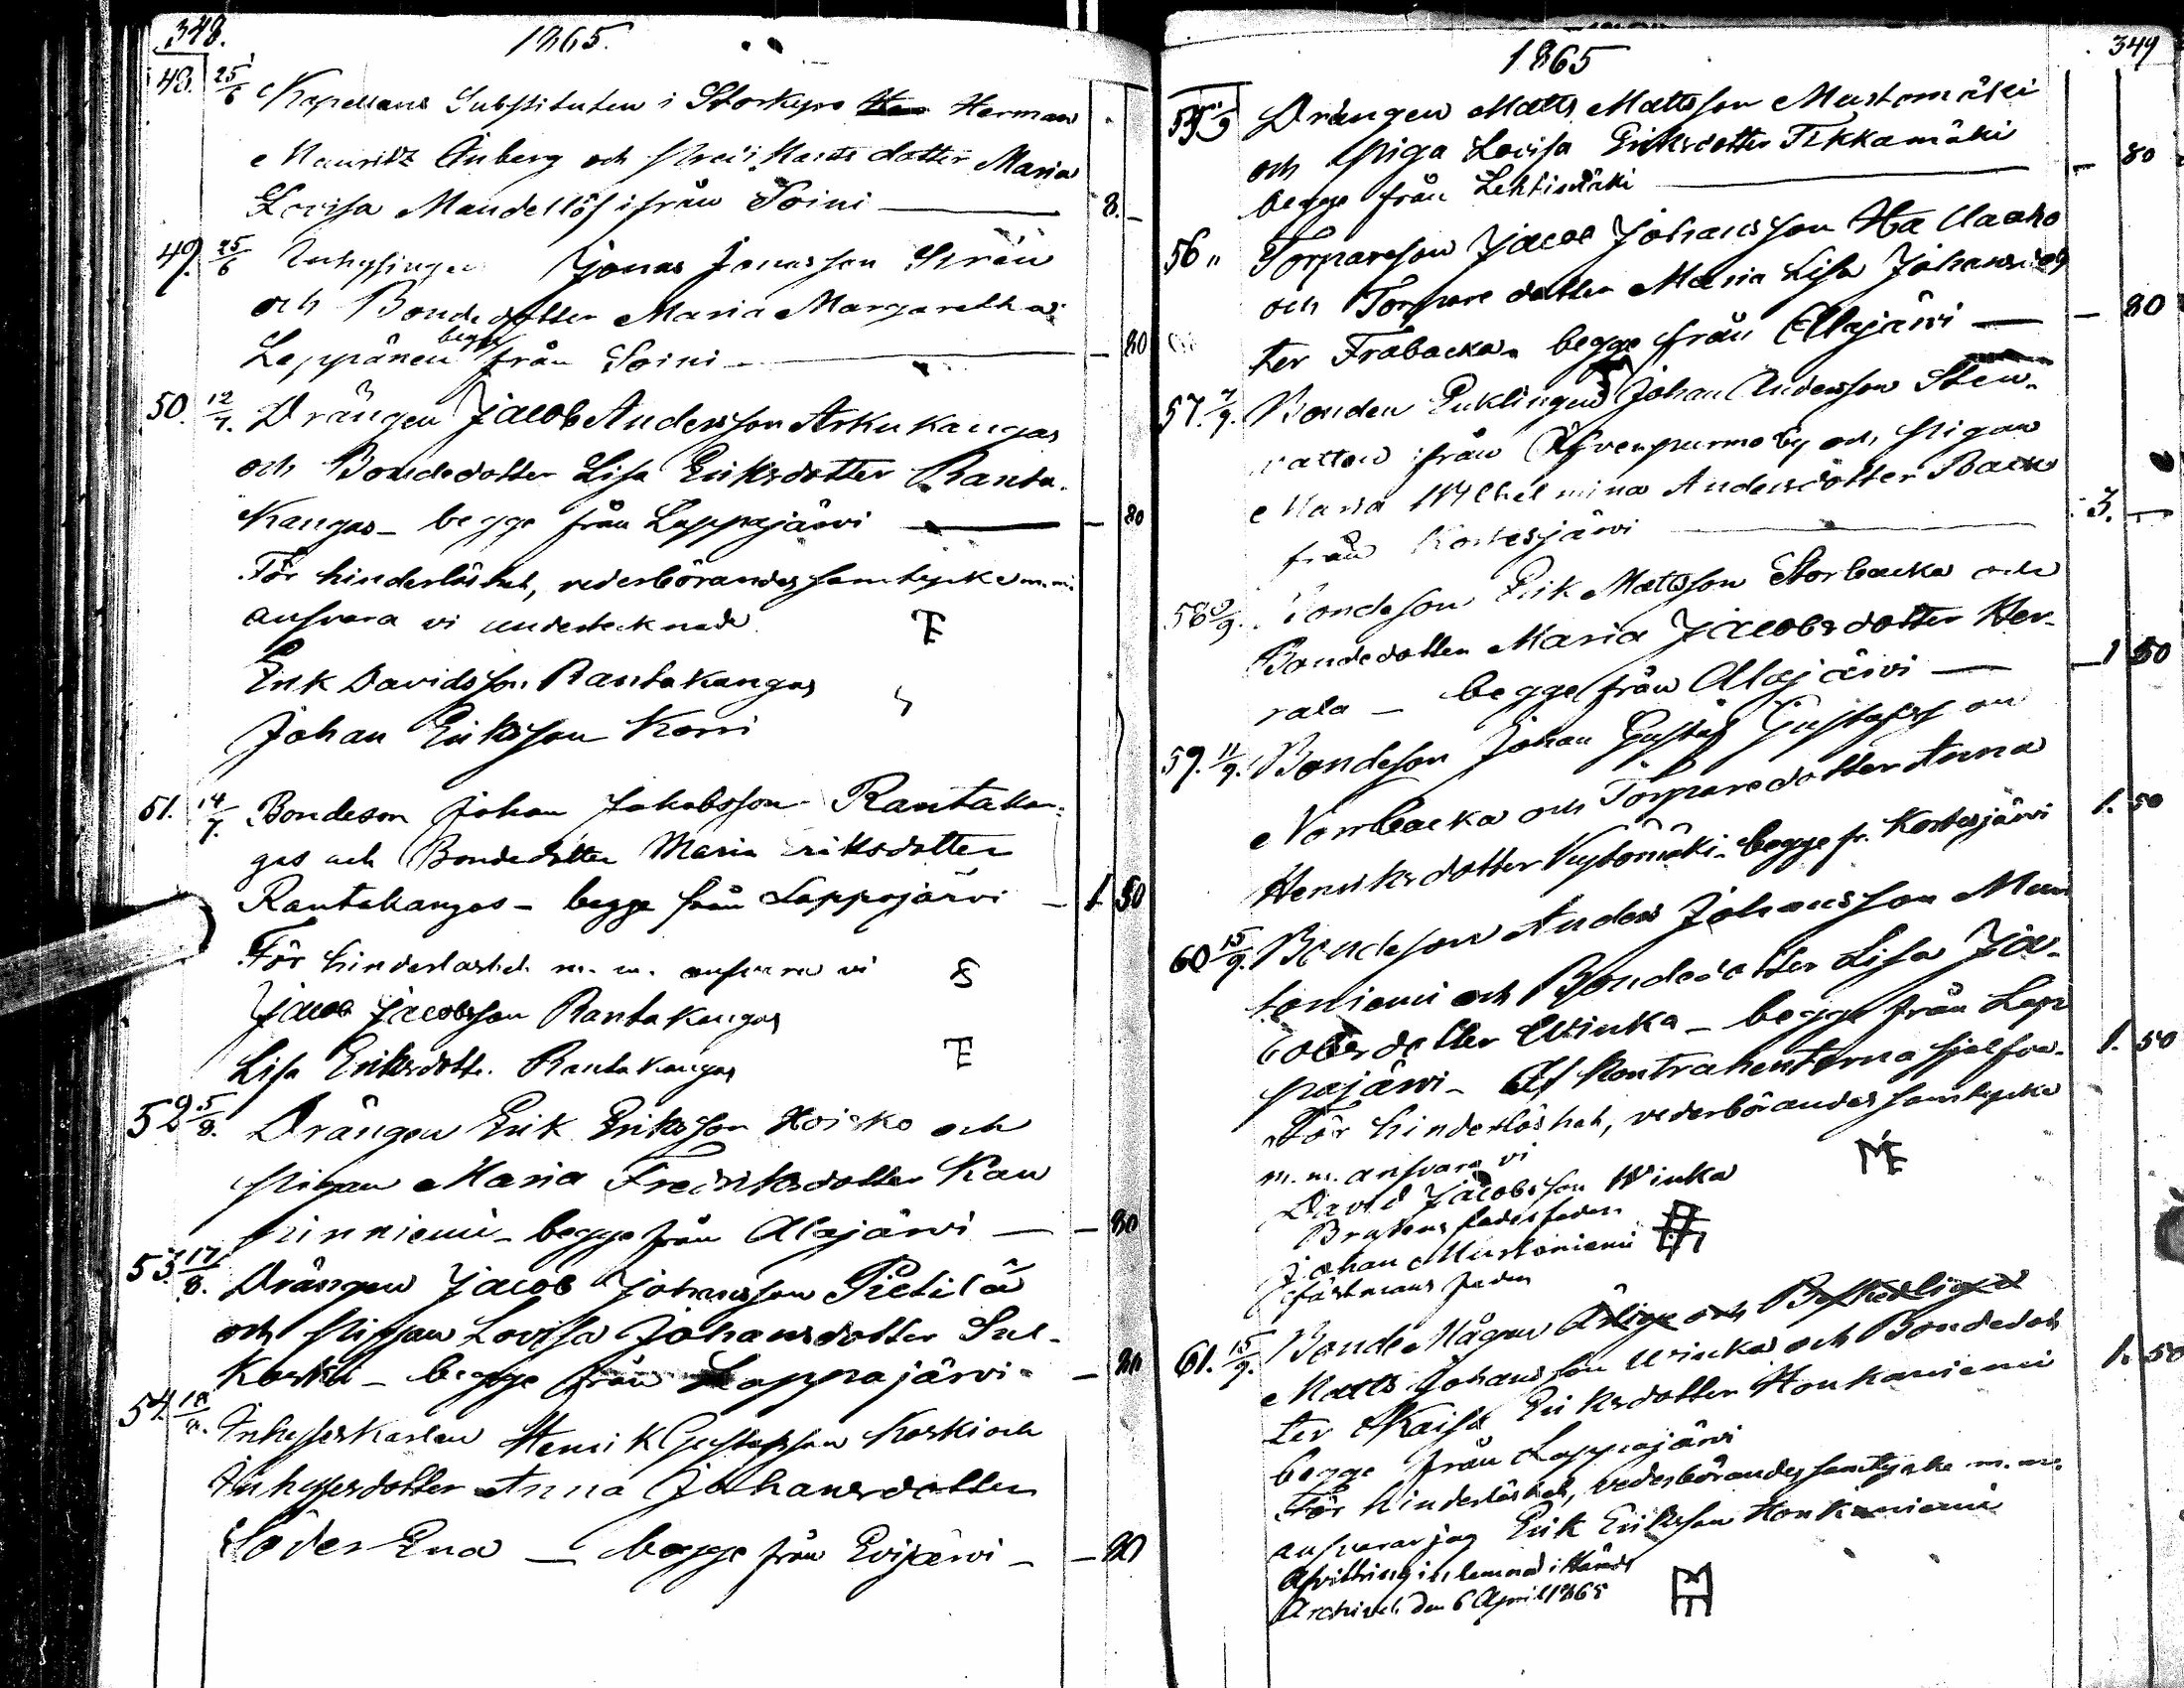 348.
1865.
48. 25/6 Kapellans Substituten i Storkyro Herman
Mauritz Ånberg och Maria
Lovisa Mandellöf ifrån Soini — 8. —
49. 25/6 Inhysingen Jonas Jonasson Sirén
och Bondedotter Maria Margaretha
Leppänen begge från Soini — 80
50. 12/7. Drängen Jacob Andersson Arkukangas
och Bondedotter Lisa Eriksdotter Ranta-
kangas — begge från Lappajärvi — 80
För hinderlöshet, vederbörandes samtycke m.m.
ansvara vi undertecknade
Erik Davidsson Rantakangas
Johan Eriksson Korri
51. 14/7. Bondeson Johan Jakobsson Rantakan-
gas och Bondedotter Maria Eriksdotter
Rantakangas — begge från Lappajärvi — 1. 50
För hinderlöshet m. m. ansvara vi
Jacob Jacobsson Rantakangas
Lisa Eriksdotte. Rantakangas
52 5/8. Drängen Erik Eriksson Hoisko och
pigan Maria Fredriksdotter Kau
niinniemi — begge från Alajärvi — 80
53 17/8. Drängen Jacob Johansson Pietilä
och pigan Lovisa Johansdotter Sul-
koski — begge från Lappajärvi — 80
54. 18/8. Inhyseskarlen Henrik Gustafsson Koski och
Inhysesdotter Anna Johansdotter
Söder Ena — begge från Evijärvi — 80
349
1865
55 /9 Drängen Matts Mattsson Mustomäki
och piga Lovisa Eriksdotter Tikkamäki
begge från Lehtimäki — 80
56 " Torpareson Jacob Johansson Hallaaho
och Torparedotter Maria Lisa Johansdot
ter Frabacka. begge från Alajärvi — 80
57. 7/9. Bonden Enklingen Johan Andersson Sten-
från Öfverpurmo by och pigan
Maria Wilhelmina Andersdotter Back
från Kortesjärvi — 3. —
58 9/9. Bondeson Erik Mattsson Storbacka och
Bondedotter Maria Jacobsdotter Her-
rala — begge från Alajärvi — 1 50
59. 11/9. Bondeson Johan Gustaf Gustafsson
Norrbacka och Torparedotter Anna
Henriksdotter Kytömäki. begge fr. Kortesjärvi 1. 50
60 15/9. Bondeson Anders Johansson Mus
toniemi och Bondedotter Lisa Ja-
cobsdotter Winka — begge från Lap
pajärvi — Af Kontrahenterna sjelfva. 1. 50
För hinderlöshet, vederbörandes samtycke
m. m. ansvara vi
David Jacobsson Winka
Brudens fader
Johan Mustoniemi
fästmans fader
61. 15/9. Bonde Mågen Ärlige och Beskedlige
Matts Johansson Winka och Bondedot
ter Kaisa Eriksdotter Honkaniemi 1. 50
begge från Lappajärvi
För hinderlöshet, vederbörandes samtycke m. m.
ansvarar jag Erik Eriksson Honkaniemi
Afvittring inlemnad i Härads
Archivet den 6 April 1865